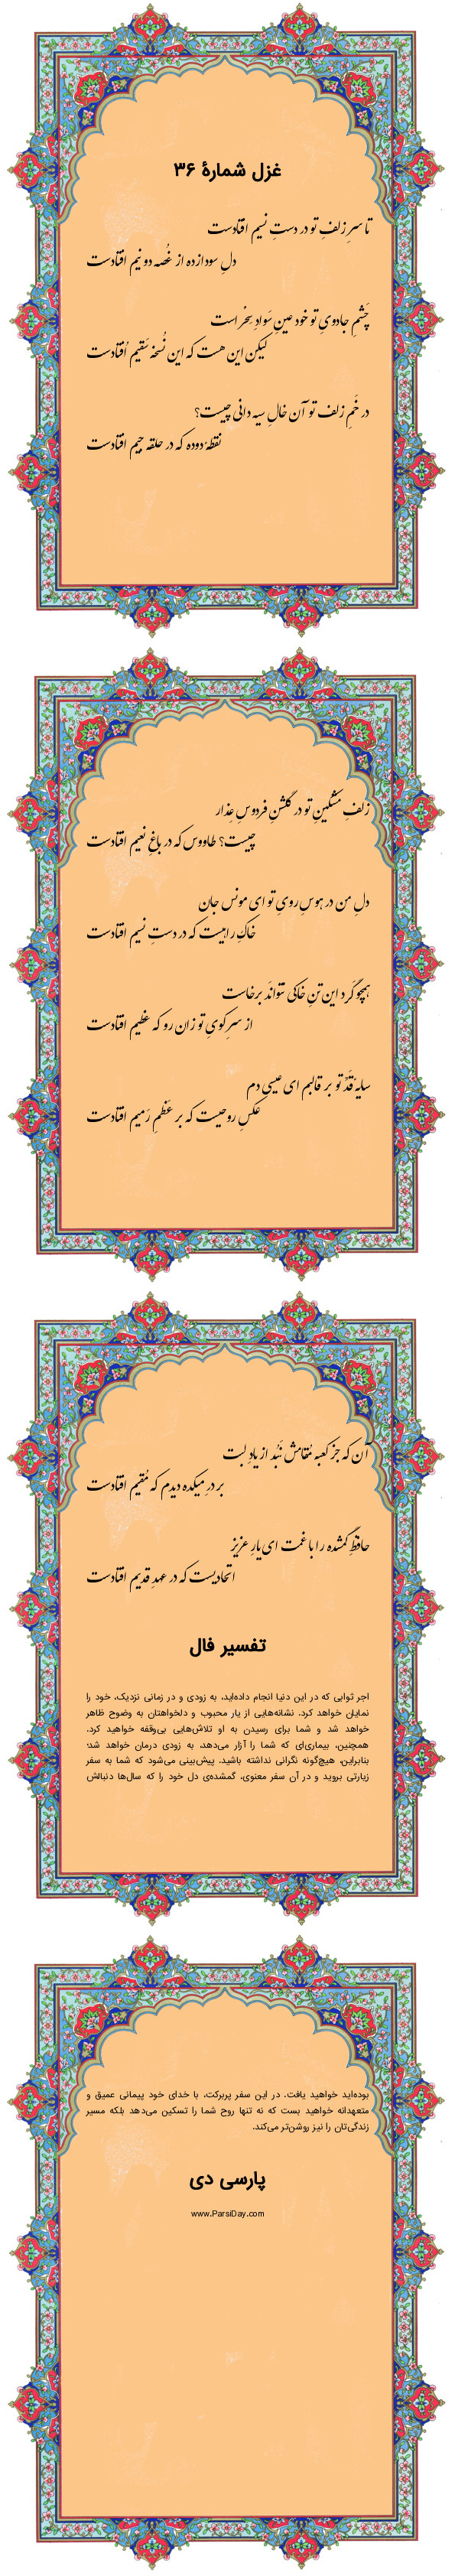 غزل شمارهٔ ۳۶
تا سرِ زلفِ تو در دستِ نسیم افتادست
دلِ سودازده از غُصه دو نیم افتادست
چَشمِ جادویِ تو خود عینِ سَوادِ سِحْر است
لیکن این هست که این نُسخه سَقیم اُفتادست
در خَمِ زلف تو آن خالِ سیه دانی چیست؟
نقطهٔ دوده که در حلقه جیم افتادست
زلفِ مشکینِ تو در گلشنِ فردوسِ عِذار
چیست؟ طاووس که در باغِ نعیم افتادست
دلِ من در هوسِ رویِ تو ای مونس جان
خاکِ راهیست که در دستِ نسیم افتادست
همچو گَرد این تنِ خاکی نتوانَد برخاست
از سرِ کویِ تو زان رو که عظیم افتادست
سایهٔ قَدِّ تو بر قالبم ای عیسی دم
عکسِ روحیست که بر عَظمِ رَمیم افتادست
آن که جز کعبه مُقامش نَبُد از یادِ لبت
بر درِ میکده دیدم که مُقیم افتادست
حافظِ گمشده را با غمت ای یارِ عزیز
اتحادیست که در عهدِ قدیم افتادست
تفسیر فال
اجر ثوابی که در این دنیا انجام داده‌اید، به زودی و در زمانی نزدیک، خود را
نمایان خواهد کرد. نشانه‌هایی از یار محبوب و دلخواهتان به وضوح ظاهر
خواهد شد و شما برای رسیدن به او تلاش‌هایی بی‌وقفه خواهید کرد.
همچنین، بیماری‌ای که شما را آزار می‌دهد، به زودی درمان خواهد شد؛
بنابراین، هیچ‌گونه نگرانی نداشته باشید. پیش‌بینی می‌شود که شما به سفر
زیارتی بروید و در آن سفر معنوی، گمشده‌ی دل خود را که سال‌ها دنبالش
بوده‌اید خواهید یافت. در این سفر پربرکت، با خدای خود پیمانی عمیق و
متعهدانه خواهید بست که نه تنها روح شما را تسکین می‌دهد بلکه مسیر
زندگی‌تان را نیز روشن‌تر می‌کند.
پارسی دی
www.ParsiDay.com